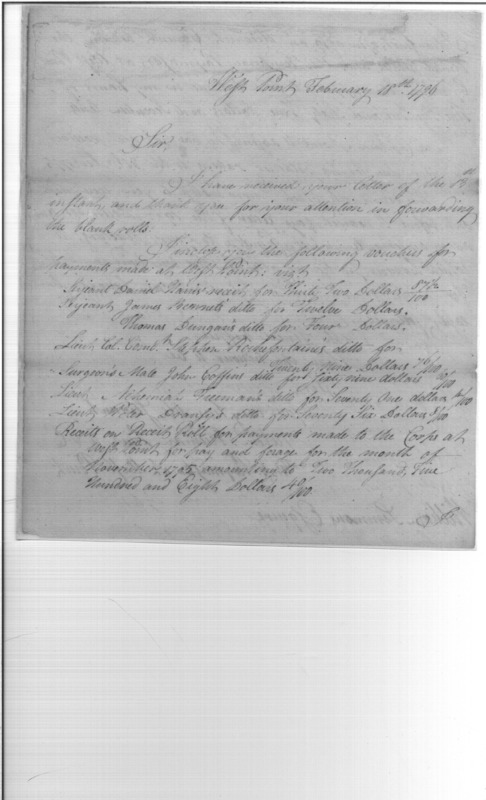 West Point February 18th. 1796
Sir,
I have received your letter of the
instant, and thank you for your attention in forwarding
the blank rolls.
I inclose you the following vouchers for
payments made at West Point; viz
Serjeant Daniel receit for Thirty Two Dollars /100
Serjeant James Bennet's ditto for Twelve Dollars.
Thomas Dungan's ditto for Four Dollars.
Lieut. Col. Comt. Stephen Rochefontaine's ditto for
Seventy Nine Dollars 76/100
Surgeon's Mate John Coffins ditto for Sixty nine dollars /100
Lieut Nehemiah Freeman's ditto for Seventy One dollars /100
Lieut. Peter Dransy's ditto for Seventy Six Dollars /100
Receits on Receit Roll for payments made to the Corps at
West Point for pay and forage for the month of
November 1795 amounting to Two Thousand, Five
Hundred and Eighty Dollars 40/100